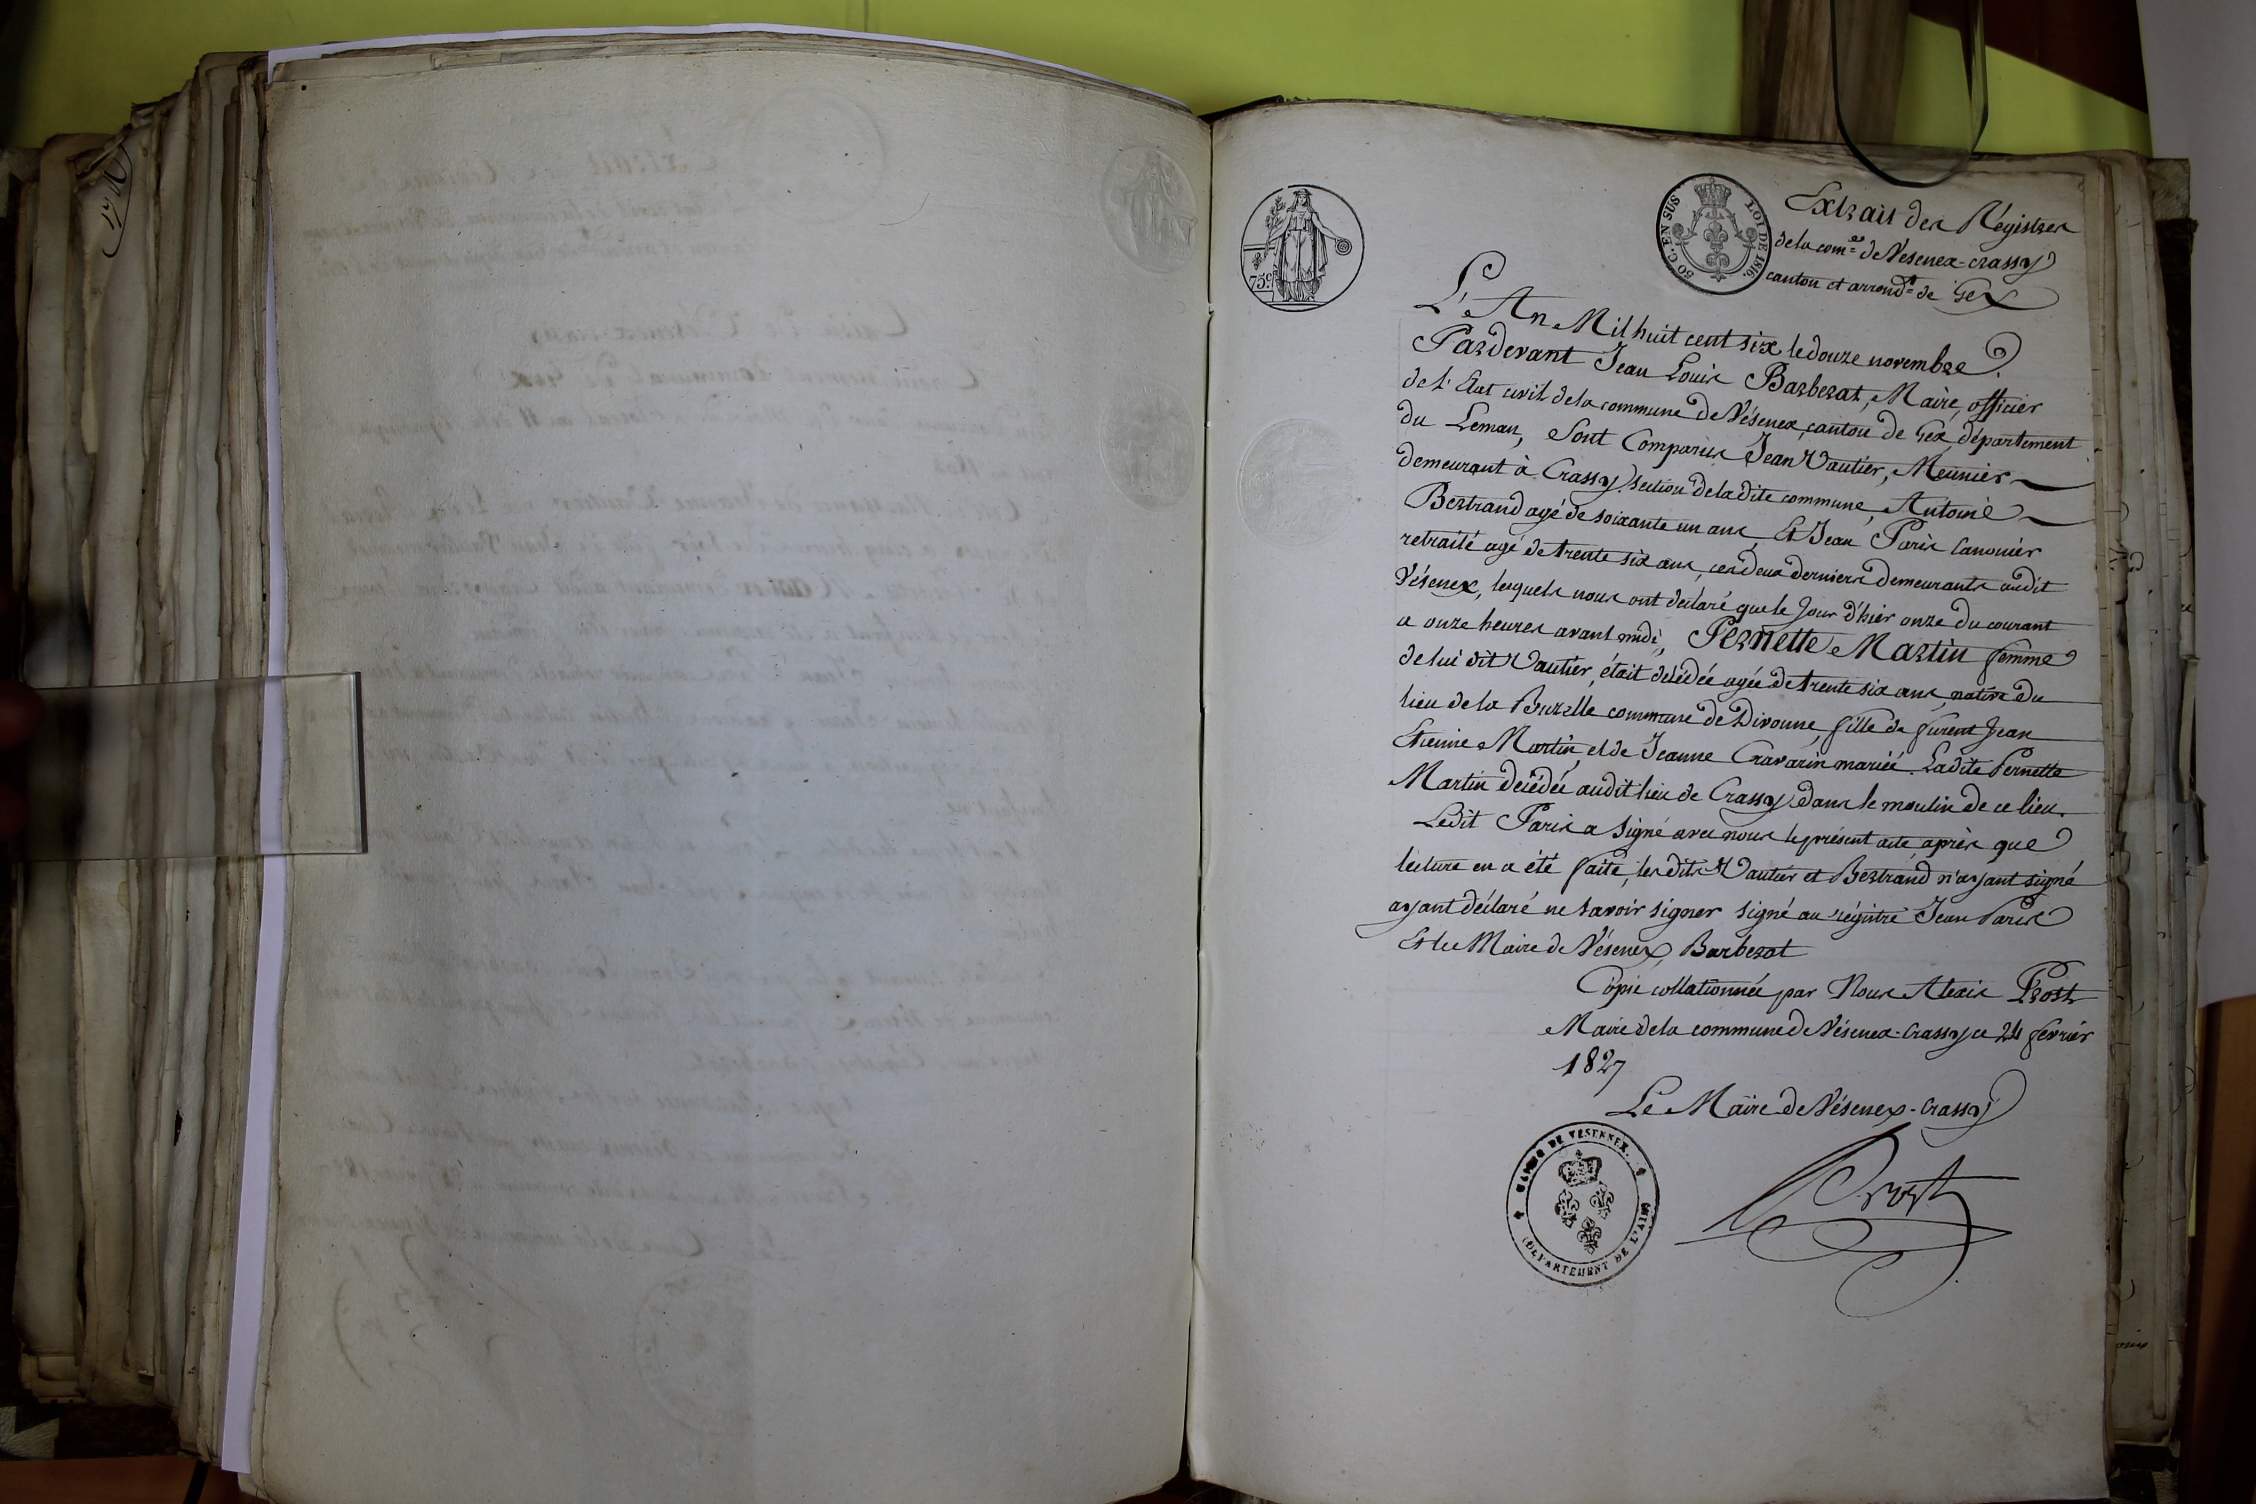 50 C. EN SUS
LOI DE 1816.
75c
Extrait des Régistres
de la com.ne de Vesenex-crassy
canton et arrond.t de Gex
L'An Mil huit cent six le douze novembre
Pardevant Jean Louis Barbezat, Maire, officier
de l'Etat civil de la commune de Vésenex, canton de Gex, département
du Leman, Sont Comparus Jean Vautier, Meunier
demeurant à Crassy section de la dite commune, Antoine
Bertrand agé de soixante un ans, Et Jean Paris Canonier
retraité agé de trente six ans, ces deux derniers demeurants audit
Vésenex, lesquels nous ont déclaré que le Jour d'hier onze du courant
a onze heures avant midi, Pernette Martin femme
de lui dit Vautier, était décédée agée de trente six ans, native du
lieu de la commune de Divonne, fille de furent Jean
Etienne Martin, et de Jeanne Cravarin mariée. Ladite Pernette
Martin décédée audit lieu de Crassy dans le moulin de ce lieu.
Ledit Paris a signé avec nous le présent acte après que
lecture en a été faite, les dits Vautier et Bertrand n'ayant signé
ayant déclaré ne savoir signer signé au régistre Jean Paris
Et le Maire de Vésenex, Barbezat
Copie collationnée par Nous Alexis Prost
Maire de la commune de Vésenex-Crassy ce 24 fevrier
1827
Le Maire de Vésenex-Crassy
MAIRIE DE VESENNEX.
(DEPARTEMENT DE L'AIN)
Prost